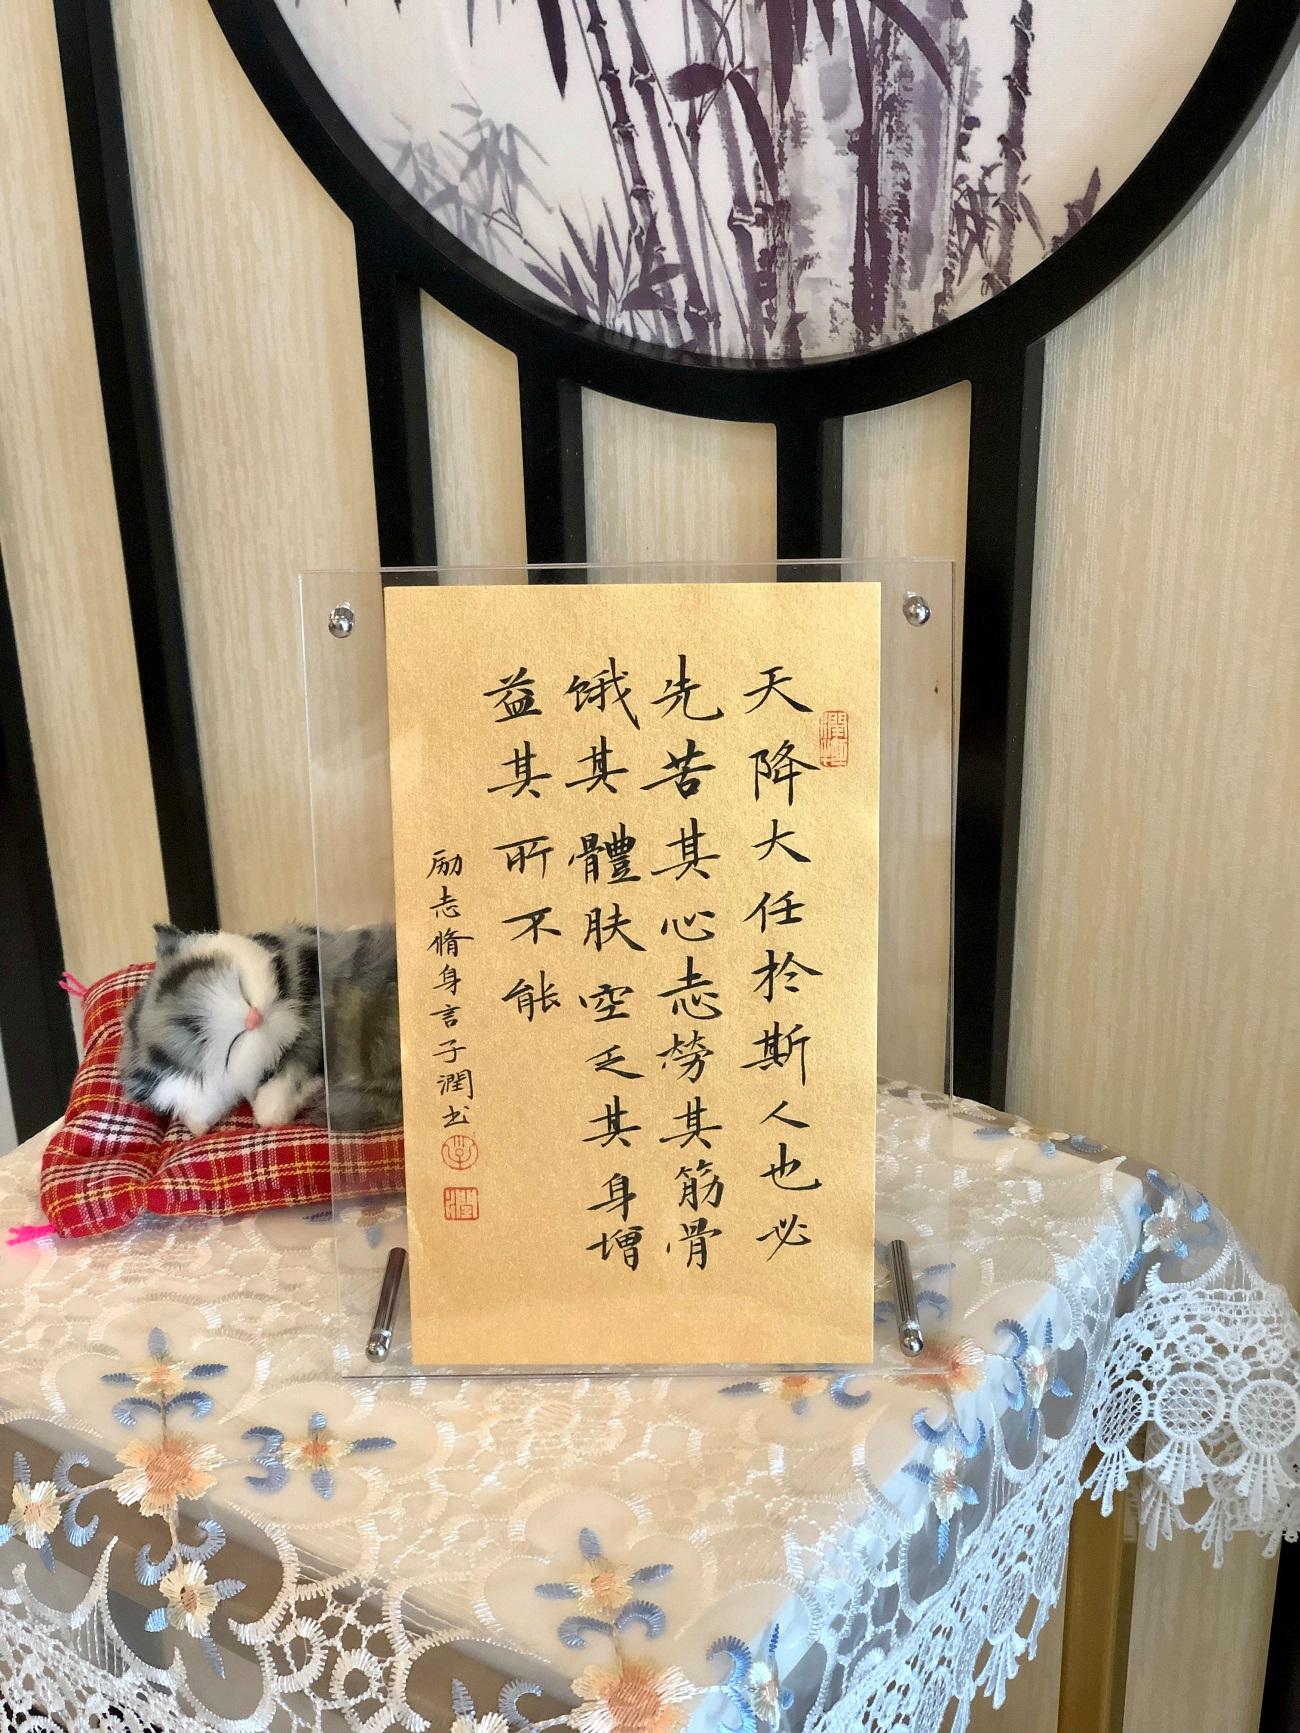 天降大任於斯人也必
先苦其心志勞其筋骨
饿其體肤空乏其身增
益其所不能
励志脩身言子潤书